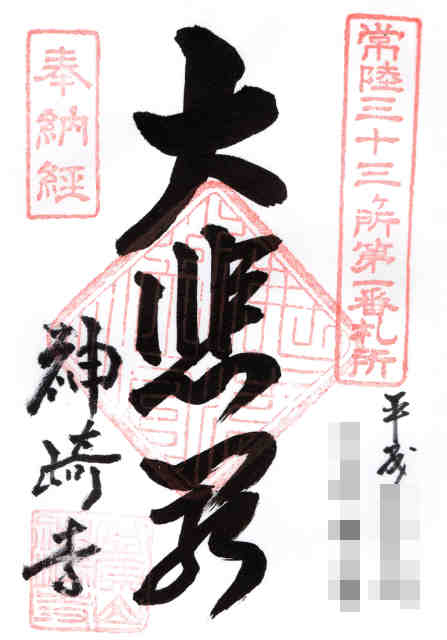 常陸三十三ヶ所第一番札所
平成
奉納経
大悲
神崎寺